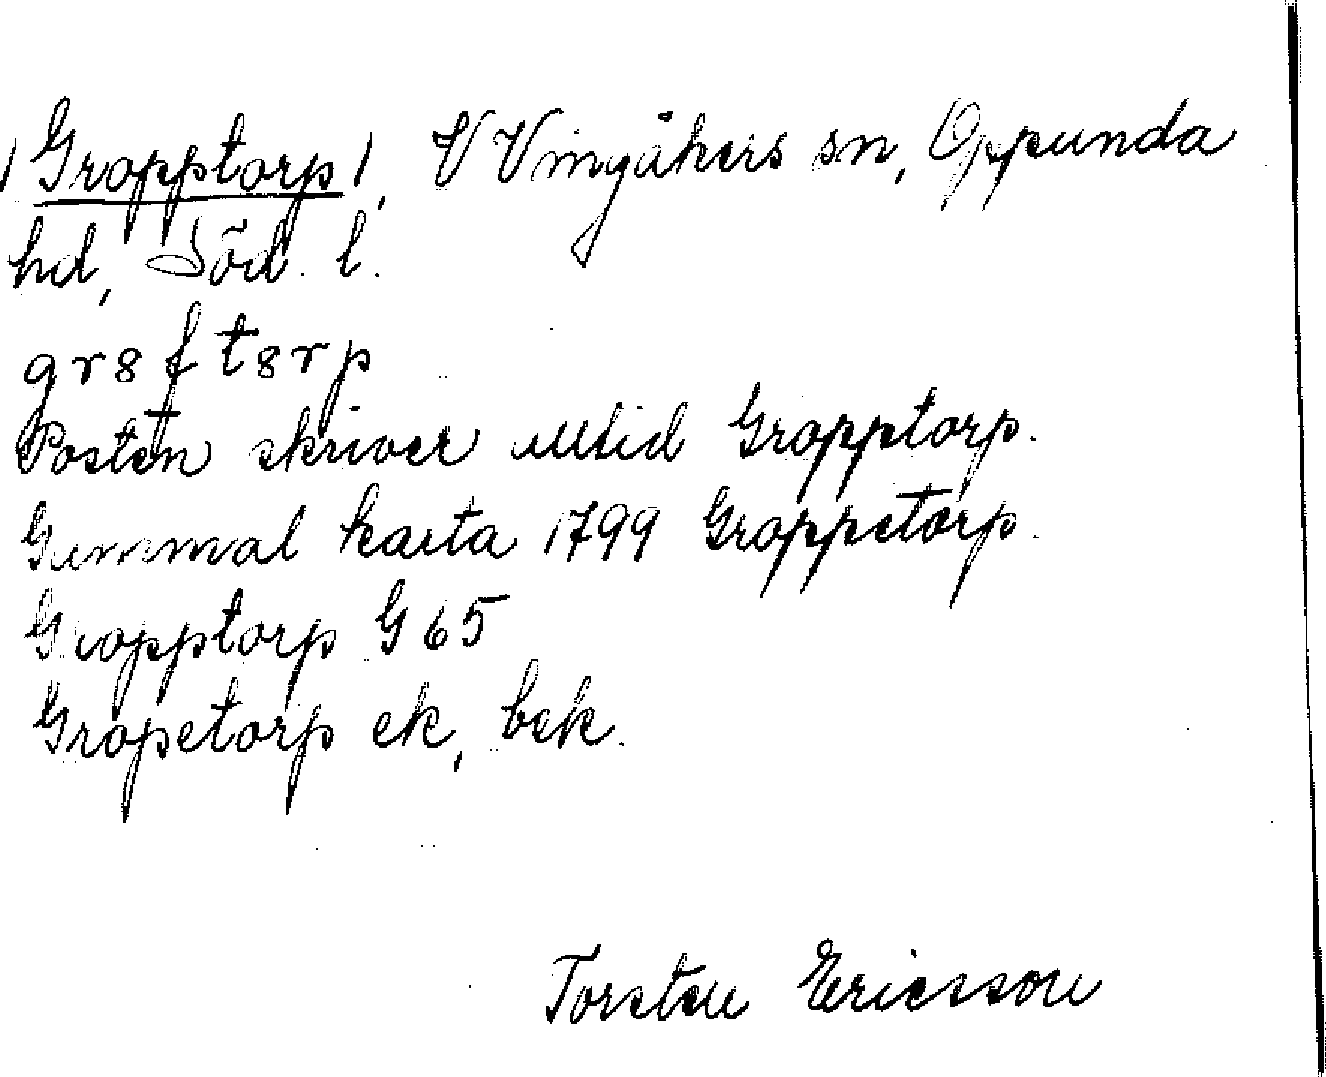 /Gropptorp/, V Vingåkers sn, Oppunda
hd, Söd. l.
gr8ft8rp
Posten skriver alltid Gropptorp.
Gammal karta 1799 Groppetorp.
Gropptorp G 65
Gropetorp ek, bek.
Torsten Ericsson